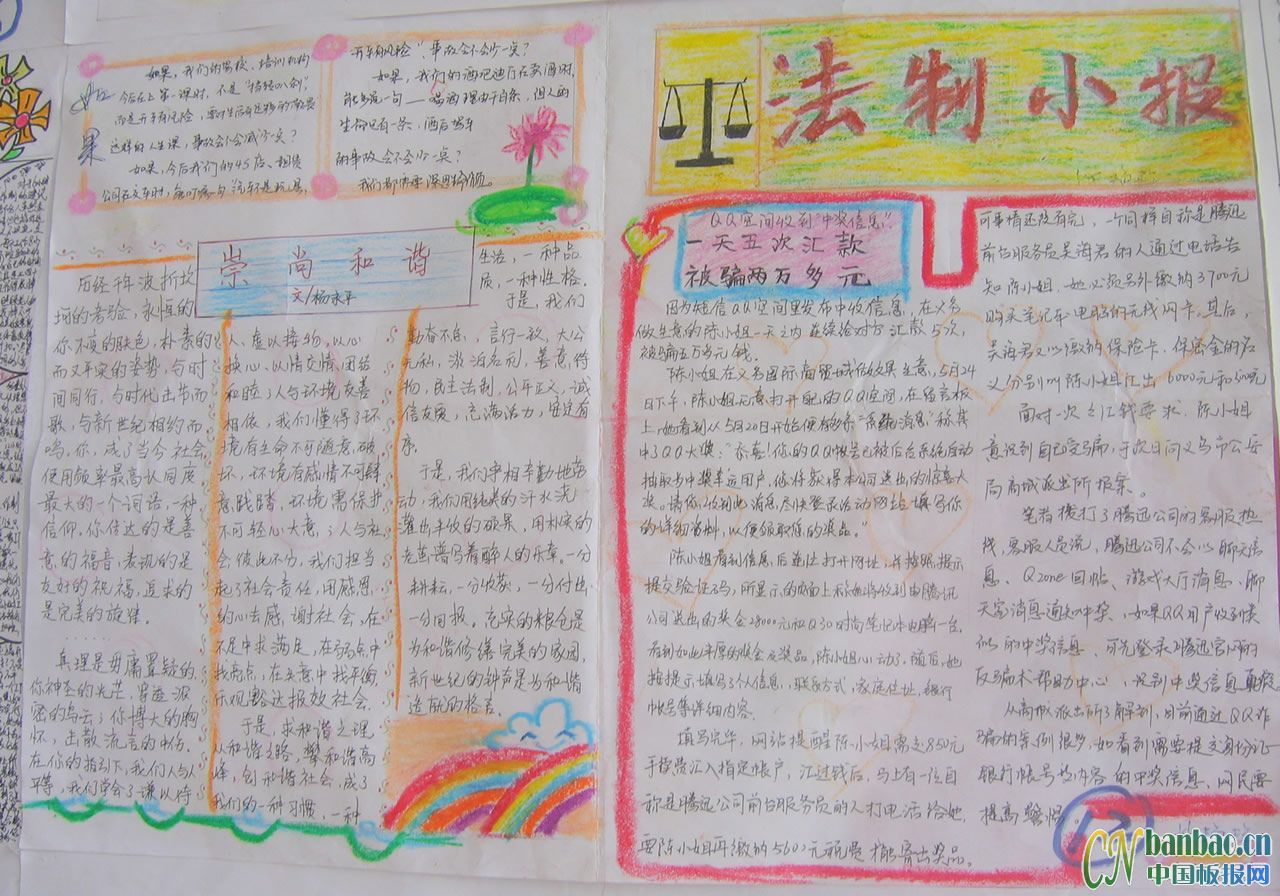 法制小报
如果
如果，我们的驾校、培训机构
今后在上第一课时，不是"精彩的八剂"
而是开车有风险，
这样的人生课，事故会不会减少一点？
如果，今后我们的4S店、租赁
公司在交车时，多叮嘱一句 汽车不是玩具，
开车有风险"，事故会不会少一点？
如果，我们的酒吧迪厅在卖酒时，
能多说一句——喝酒理由千百条，但人的
生命只有一条，酒后驾车
的事故会不会少一点？
我们都需要深思
崇尚和谐
文/杨永平
历经千年波折坎
坷的考验，永恒的
你不变的肤色，朴素的
而又平实的姿势，与时
间同行，与时代击节而
歌，与新世纪相约而
鸣，你，成了当今社会
使用频率最高认同度
最大的一个词语，一种
信仰。你传达的是善
意的福音，表现的是
友好的祝福，追求的
是完美的旋律。
……
真理是毋庸置疑的，
你神圣的光芒，穿透浓
密的乌云；你博大的胸
怀，击散流言的中伤。
在你的指引下，我们人与人
平等，我们学会了谦以待
人、虚以接物，以心
换心、以情交情，团结
和睦；人与环境友善
相依，我们懂得了环
境有生命不可随意破
坏，环境有感情不可肆
意践踏，环境需保护
不可轻心大意；人与社
会彼此不分，我们担当
起了社会责任，用感恩
的心去感谢社会，在
不足中求满足，在弱点中
找亮点，在失意中找平衡
乐观豁达报效社会。
于是，求和谐之理，
从和谐之路，攀和谐高
峰，创和谐社会，成了
我们的一种习惯，一种
生活，一种品
质，一种性格。
于是，我们
勤奋不息，言行一致，大公
无私，淡泊名利，善意待
物，民主法制，公平正义，诚
信友爱，充满活力，安定有
序。
于是，我们争相辛勤地劳
动，我们用纯美的汗水浇
灌出丰收的硕果，用朴实的
老茧谱写着醉人的乐章。一分
耕耘，一分收获，一分付出
一分回报。充实的粮仓是
为和谐修缮完美的家园，
新世纪的钟声是为和谐
造访的格言。
QQ空间收到"中奖信息"
一天五次汇款
被骗两万多元
因为短信QQ空间里发布中收信息，在义乌
做生意的陈小姐一天之内连续给对方汇款5次，
被骗五万多元钱。
陈小姐在义乌国际商贸城做效果生意，5月24
日下午，陈小姐无意打开自己的QQ空间，在留言板
上，她看到从5月20日开始便有多条"系统消息"称其
中3QQ大奖："恭喜！你的QQ帐号已被后台系统自动
抽取为中奖幸运用户，你将获得本公司送出的惊喜大
奖。请你收到此消息尽快登录活动网站填写你
的详细资料，以便领取您的奖品。"
陈小姐看到信息后立即打开网址，并按照提示
提交验证码，所显示的页面上称她将收到由腾讯
公司送出的奖金28000元和Q30时尚笔记本电脑一台。
看到如此丰厚的奖金及奖品，陈小姐心动了。随后，她
按提示填写了个人信息，联系方式，家庭住址，银行
帐号等详细内容。
填写完毕，网站提醒陈小姐需交850元
手续费汇入指定帐户，汇过钱后，马上有一位自
称是腾迅公司前台服务员的人打电话给她，
要陈小姐再缴纳5600元税费才能寄出奖品。
可事情还没有完，一个同样自称是腾迅
前台服务员吴海君的人通过电话告
知陈小姐，她必须另外缴纳3700元
购买笔记本电脑的无线网卡。其后，
吴海君又以缴纳保险卡，保密金的名
义分别叫陈小姐汇出6000元和5000元
面对一次次汇钱要求，陈小姐
意识到自己受骗，于次日向义乌市公安
局商城派出所报案。
笔者拨打了腾迅公司的客服热
线，客服人员说，腾迅公司不会以聊天信
息、Qzone回帖、游戏大厅消息、聊
天室消息通知中奖，如果QQ用户收到类
似的中奖信息，可先登录腾迅官网的
反骗术帮助中心，识别中奖信息真假
从商城派出所了解到，目前通过QQ诈
骗的案例很多，如看到需要提交身份证
银行帐号均内容的中奖信息，网民要
提高警惕
CN banbao.cn
中国板报网